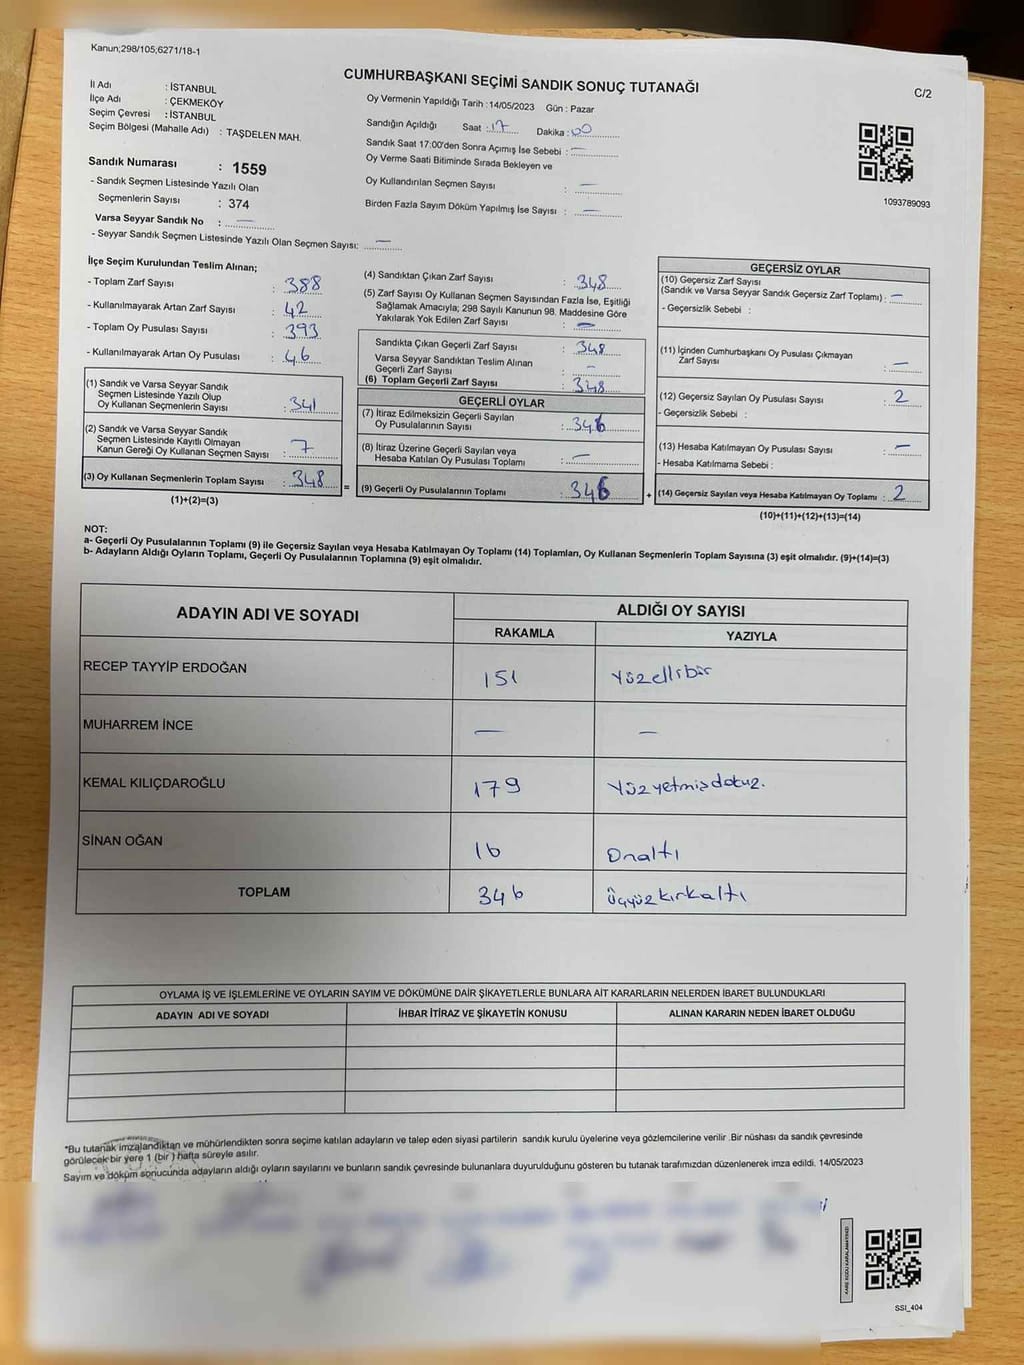 Kanun;298/105;6271/18-1
CUMHURBAŞKANI SEÇİMİ SANDIK SONUÇ TUTANAĞI
C/2
İl Adı : İSTANBUL
İlçe Adı : ÇEKMEKÖY
Seçim Çevresi : İSTANBUL
Seçim Bölgesi (Mahalle Adı) : TAŞDELEN MAH.
Sandık Numarası : 1559
- Sandık Seçmen Listesinde Yazılı Olan
Seçmenlerin Sayısı : 374
Varsa Seyyar Sandık No : —
- Seyyar Sandık Seçmen Listesinde Yazılı Olan Seçmen Sayısı: —
Oy Vermenin Yapıldığı Tarih : 14/05/2023 Gün : Pazar
Sandığın Açıldığı Saat : 17 Dakika : 00
Sandık Saat 17:00'den Sonra Açımış İse Sebebi : —
Oy Verme Saati Bitiminde Sırada Bekleyen ve
Oy Kullandırılan Seçmen Sayısı : —
Birden Fazla Sayım Döküm Yapılmış İse Sayısı : —
1093789093
İlçe Seçim Kurulundan Teslim Alınan;
- Toplam Zarf Sayısı : 388
- Kullanılmayarak Artan Zarf Sayısı : 42
- Toplam Oy Pusulası Sayısı : 393
- Kullanılmayarak Artan Oy Pusulası : 46
(1) Sandık ve Varsa Seyyar Sandık
Seçmen Listesinde Yazılı Olup
Oy Kullanan Seçmenlerin Sayısı : 341
(2) Sandık ve Varsa Seyyar Sandık
Seçmen Listesinde Kayıtlı Olmayan
Kanun Gereği Oy Kullanan Seçmen Sayısı : 7
(3) Oy Kullanan Seçmenlerin Toplam Sayısı : 348 =
(1)+(2)=(3)
(4) Sandıktan Çıkan Zarf Sayısı : 348
(5) Zarf Sayısı Oy Kullanan Seçmen Sayısından Fazla İse, Eşitliği
Sağlamak Amacıyla; 298 Sayılı Kanunun 98. Maddesine Göre
Yakılarak Yok Edilen Zarf Sayısı : —
Sandıkta Çıkan Geçerli Zarf Sayısı : 348
Varsa Seyyar Sandıktan Teslim Alınan
Geçerli Zarf Sayısı : —
(6) Toplam Geçerli Zarf Sayısı : 348
GEÇERLİ OYLAR
(7) İtiraz Edilmeksizin Geçerli Sayılan
Oy Pusulalarının Sayısı : 346
(8) İtiraz Üzerine Geçerli Sayılan veya
Hesaba Katılan Oy Pusulası Toplamı : —
(9) Geçerli Oy Pusulalarının Toplamı : 346 +
GEÇERSİZ OYLAR
(10) Geçersiz Zarf Sayısı
(Sandık ve Varsa Seyyar Sandık Geçersiz Zarf Toplamı) : —
- Geçersizlik Sebebi :
(11) İçinden Cumhurbaşkanı Oy Pusulası Çıkmayan
Zarf Sayısı : —
(12) Geçersiz Sayılan Oy Pusulası Sayısı : 2
- Geçersizlik Sebebi :
(13) Hesaba Katılmayan Oy Pusulası Sayısı : —
- Hesaba Katılmama Sebebi :
(14) Geçersiz Sayılan veya Hesaba Katılmayan Oy Toplamı : 2
(10)+(11)+(12)+(13)=(14)
NOT:
a- Geçerli Oy Pusulalarının Toplamı (9) ile Geçersiz Sayılan veya Hesaba Katılmayan Oy Toplamı (14) Toplamları, Oy Kullanan Seçmenlerin Toplam Sayısına (3) eşit olmalıdır. (9)+(14)=(3)
b- Adayların Aldığı Oyların Toplamı, Geçerli Oy Pusulalarının Toplamına (9) eşit olmalıdır.
ADAYIN ADI VE SOYADI ALDIĞI OY SAYISI
RAKAMLA YAZIYLA
RECEP TAYYİP ERDOĞAN 151 Yüzellibir
MUHARREM İNCE — —
KEMAL KILIÇDAROĞLU 179 Yüzyetmişdokuz.
SİNAN OĞAN 16 Onaltı
TOPLAM 346 Üçyüzkırkaltı
OYLAMA İŞ VE İŞLEMLERİNE VE OYLARIN SAYIM VE DÖKÜMÜNE DAİR ŞİKAYETLERLE BUNLARA AİT KARARLARIN NELERDEN İBARET BULUNDUKLARI
ADAYIN ADI VE SOYADI İHBAR İTİRAZ VE ŞİKAYETİN KONUSU ALINAN KARARIN NEDEN İBARET OLDUĞU
*Bu tutanak imzalandıktan ve mühürlendikten sonra seçime katılan adayların ve talep eden siyasi partilerin sandık kurulu üyelerine veya gözlemcilerine verilir .Bir nüshası da sandık çevresinde
görülecek bir yere 1 (bir ) hafta süreyle asılır.
Sayım ve döküm sonucunda adayların aldığı oyların sayılarını ve bunların sandık çevresinde bulunanlara duyurulduğunu gösteren bu tutanak tarafımızdan düzenlenerek imza edildi. 14/05/2023
KARE KODU KARALAMAYINIZ!
SSI_404